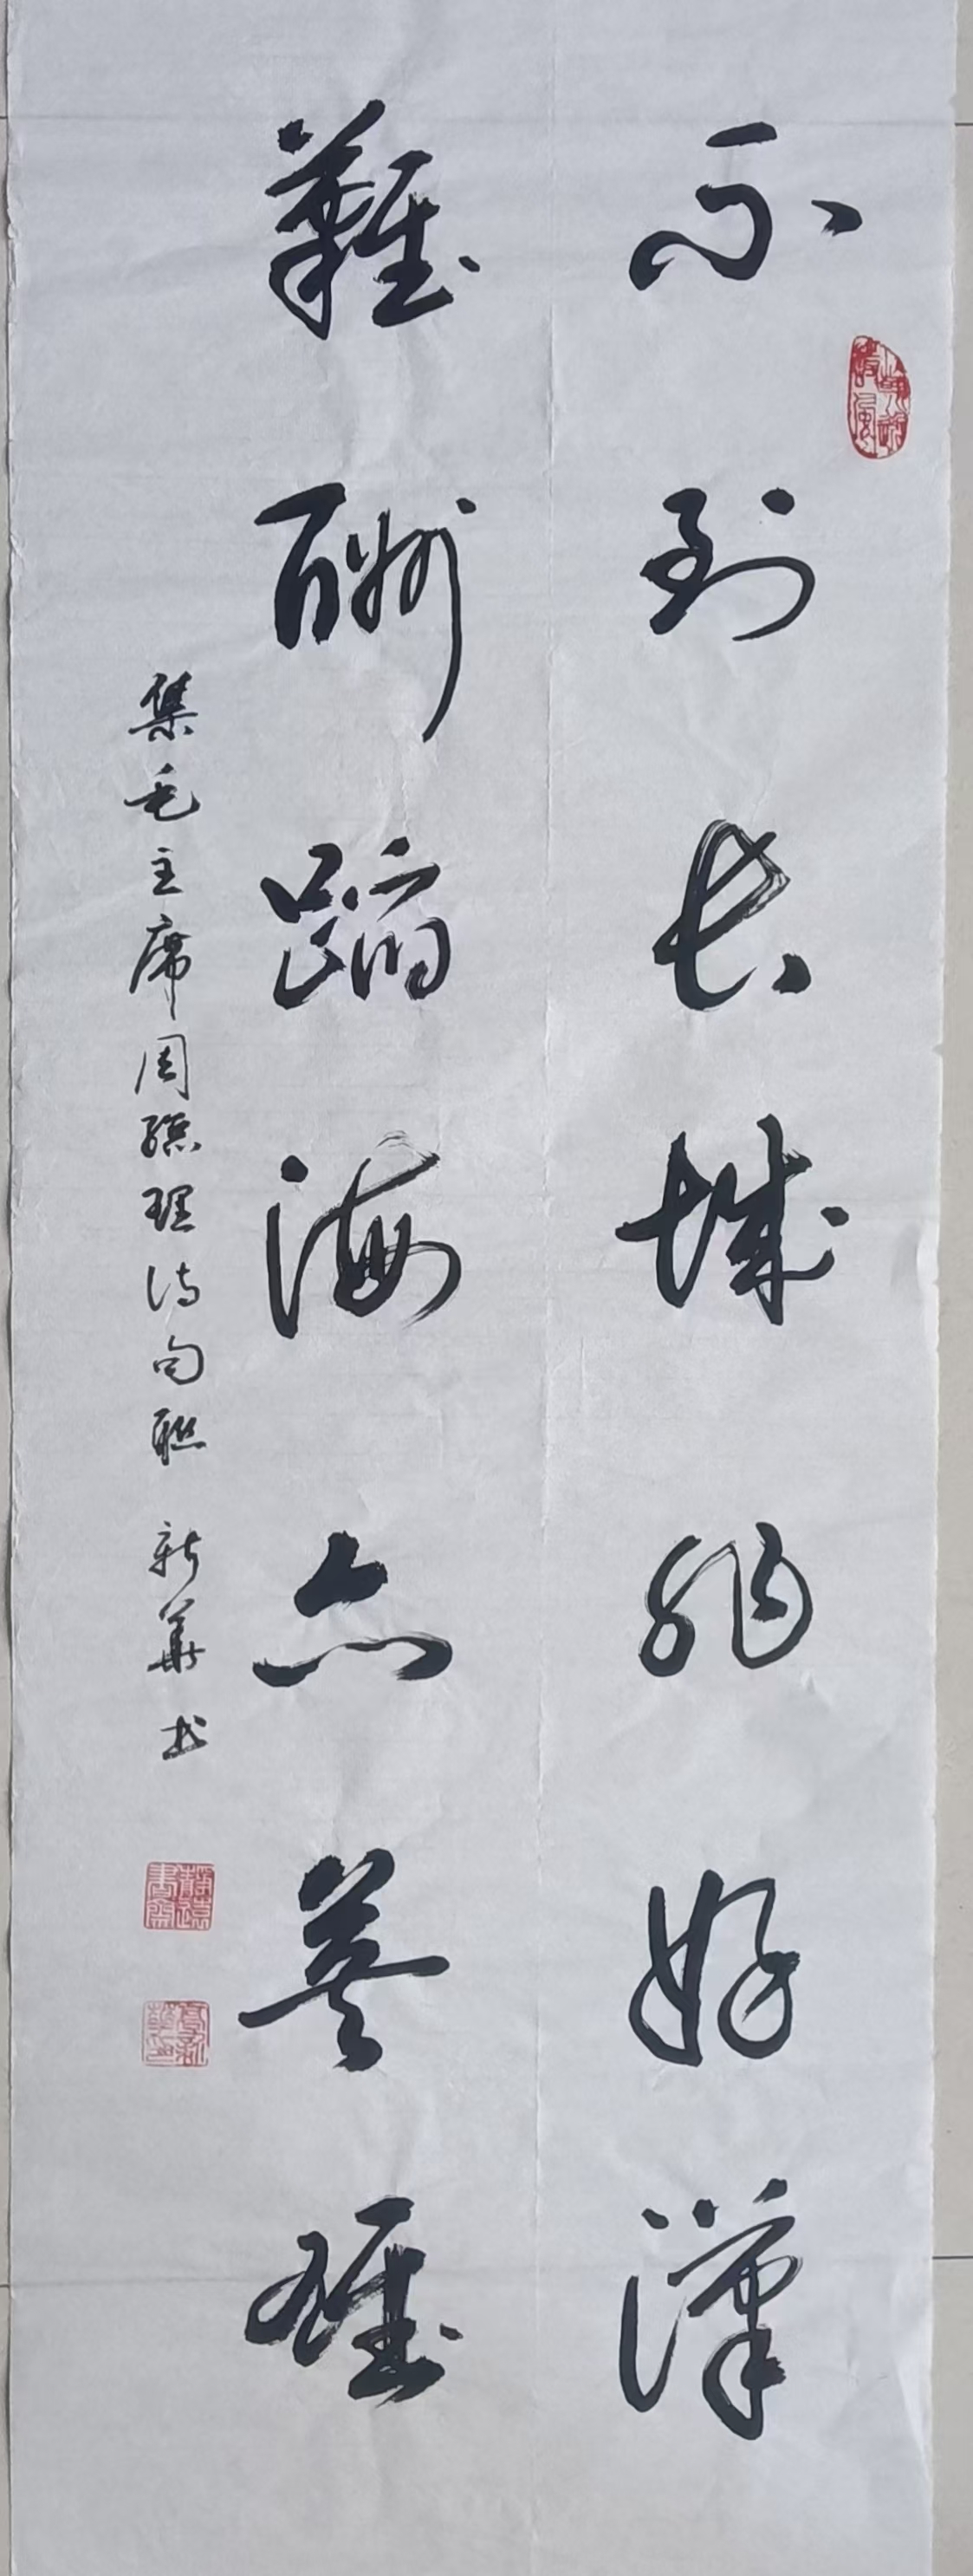 不到长城非好漢
難酬蹈海亦英雄
集毛主席周總理诗句聯 新華书